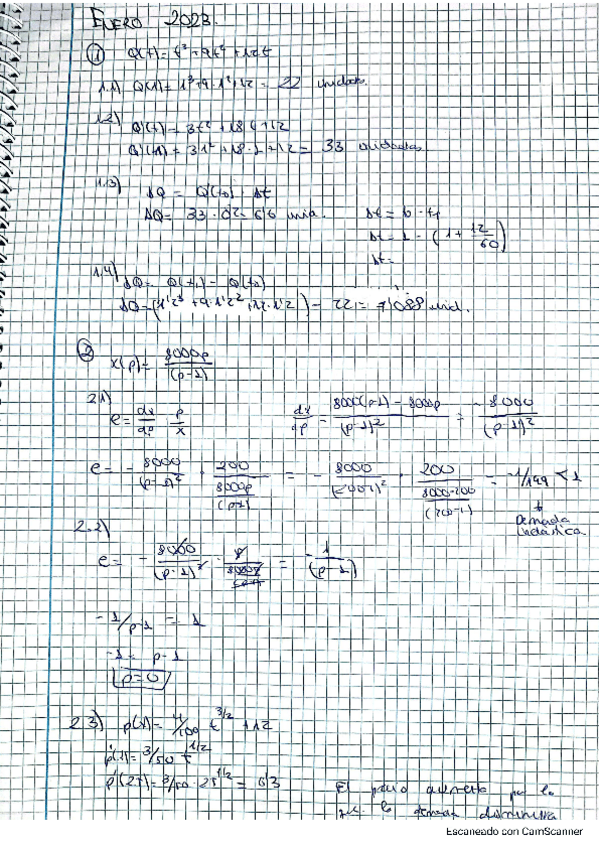 ENERO 2023.
① Q(t) = t³ + 9t² + 12t
1.1) Q(1) = 1³ + 9·1² + 12 = 22 unidades.
1.2) Q'(t) = 3t² + 18t + 12
Q'(1) = 3·1² + 18·1 + 12 = 33 unidades.
1.3) ΔQ = Q'(t₀) · Δt
ΔQ = 33 · 0'2 = 6'6 unid.
Δt = 1 - (1 + 12/60)
Δt =
1.4) ΔQ = Q(t₁) - Q(t₀)
ΔQ = (1'2³ + 9·1'2² + 12·1'2) - 22 = 7'088 unid.
② x(p) = 8000p/(p-1)
2.1) e = dx/dp · p/x
dx/dp = 8000(p-1) - 8000p/(p-1)² = -8000/(p-1)²
e = - 8000/(p-1)² · 200/(8000p/(p-1)) = - 8000/(200-1)² · 200/(8000·200/(200-1)) = -1/199 < 1
↓
Demanda
inelástica.
2.2)
e = - 8000/(p-1)² · p/(8000p/(p-1)) = - 1/(p-1)
-1/p-1 = 1
-1 = p-1
p=0
2.3) t^3/2 + 12
3/50 t^1/2
3/50 · 25^1/2 = 0'3
El aumenta por lo
la demanda disminuirá
Escaneado con CamScanner